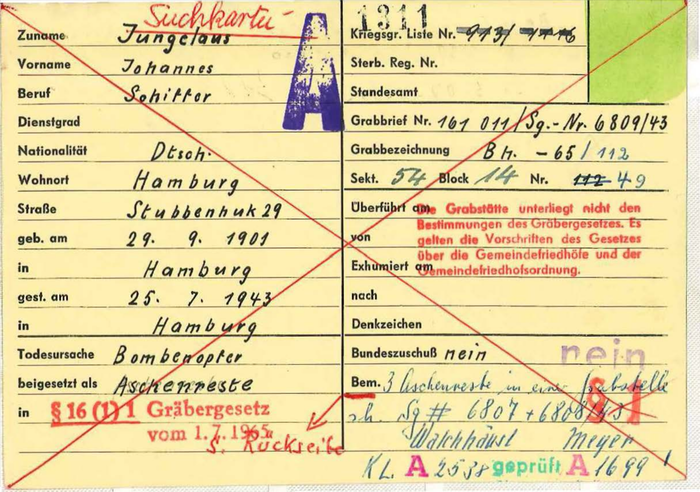 Suchkarte
Zuname Jungclaus
Vorname Johannes
Beruf Schiffer
Dienstgrad
Nationalität Dtsch.
Wohnort Hamburg
Straße Stubbenhuk 29
geb. am 29. 9. 1901
in Hamburg
gest. am 25. 7. 1943
in Hamburg
Todesursache Bombenopfer
beigesetzt als Aschenreste
in § 16 (1) 1 Gräbergesetz
vom 1.7.1965
s. Rückseite
A
1311
Kriegsgr. Liste Nr. 913/
Sterb. Reg. Nr.
Standesamt
Grabbrief Nr. 161 011/Sg.-Nr. 6809/43
Grabbezeichnung Bh. -65/112
Sekt. 54 Block 14 Nr. 112 49
Überführt am
von
Exhumiert am
nach
Die Grabstätte unterliegt nicht den
Bestimmungen des Gräbergesetzes. Es
gelten die Vorschriften des Gesetzes
über die Gemeindefriedhöfe und der
Gemeindefriedhofsordnung.
Denkzeichen
Bundeszuschuß nein nein
Bem. 3 Aschenreste in einer Grabstelle
§ 1
sh. Sg # 6807 + 6808/43
Meyer
KL. A 2538 geprüft A 1699